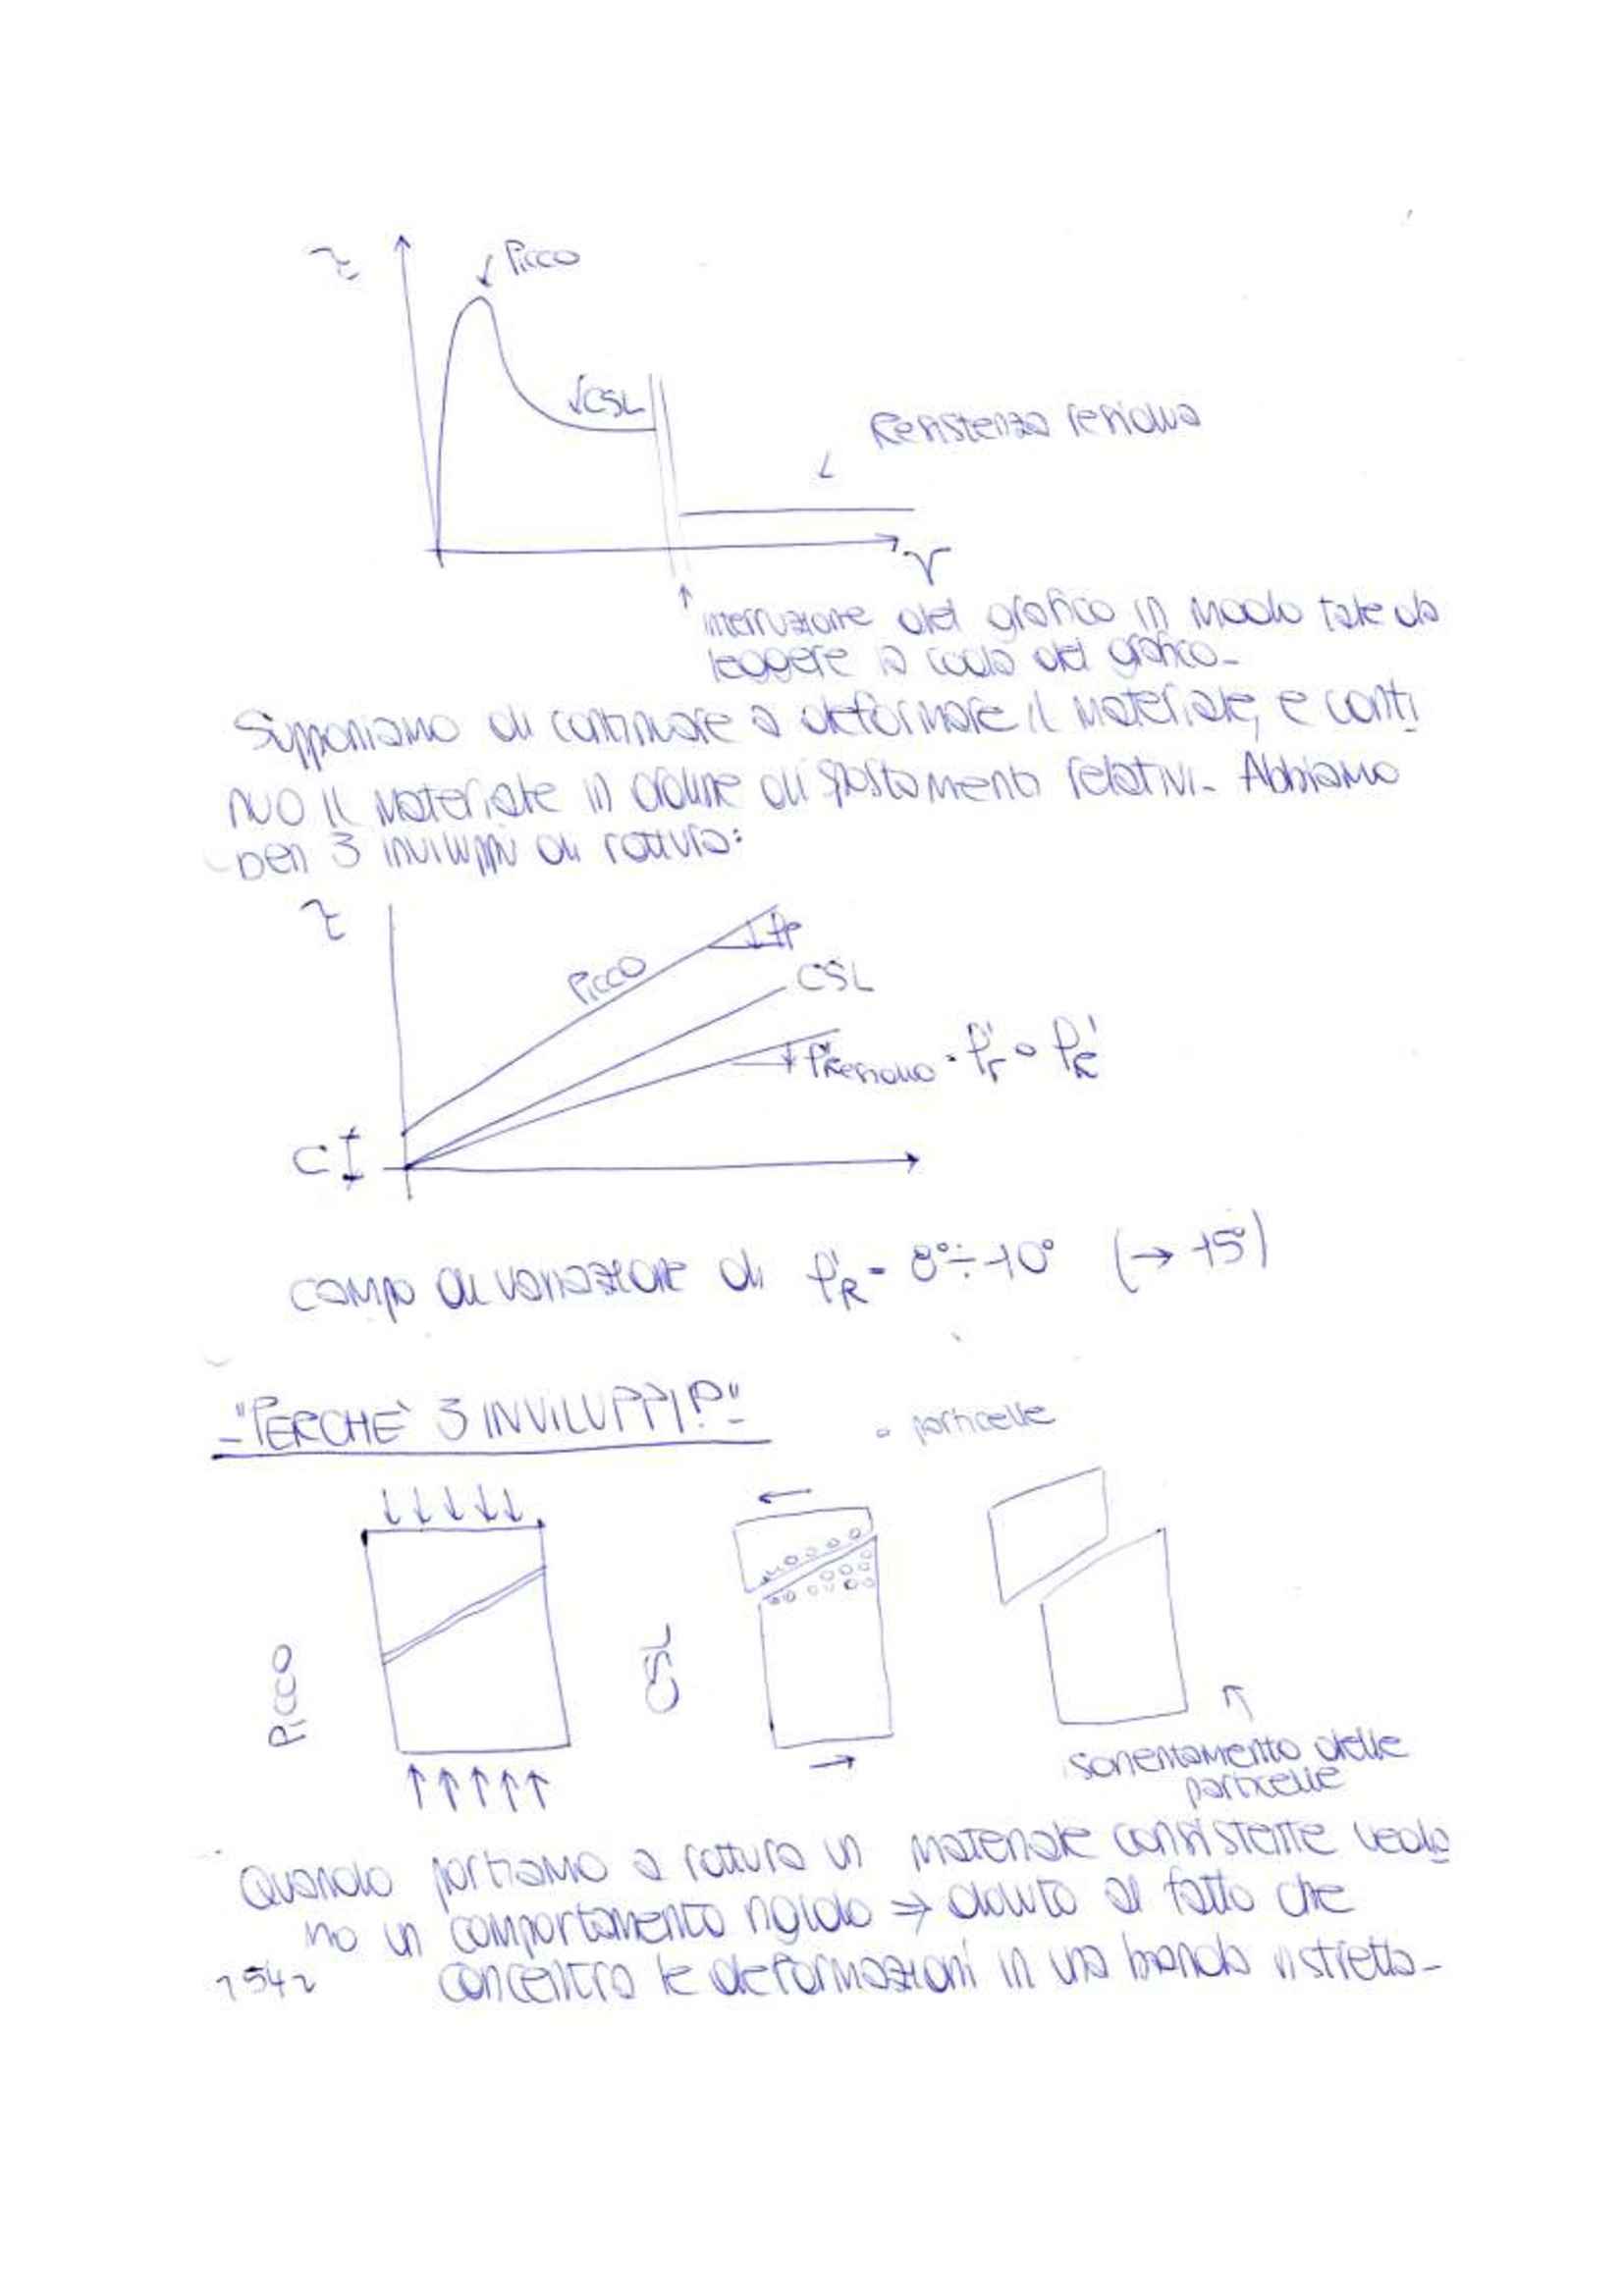 τ
Picco
CSL
Resistenza residua
γ
interruzione del grafico in modo tale da
leggere la coda del grafico-
Supponiamo di continuare a deformare il materiale, e conti
nuo il materiale in ordine di spostamenti relativi. Abbiamo
ben 3 inviluppi di rottura:
τ
Picco
φ'p
CSL
φ'Residuo = φ'r o φ'R
C
campo di variazione di φ'R = 8° ÷ 10° (→ 15°)
-"PERCHÈ 3 INVILUPPI?"-
∘ particelle
Picco
CSL
isorientamento delle
particelle
Quando portiamo a rottura un materiale consistente vedia
mo un comportamento rigido ⇒ dovuto al fatto che
concentra le deformazioni in una banda ristretta-
1542